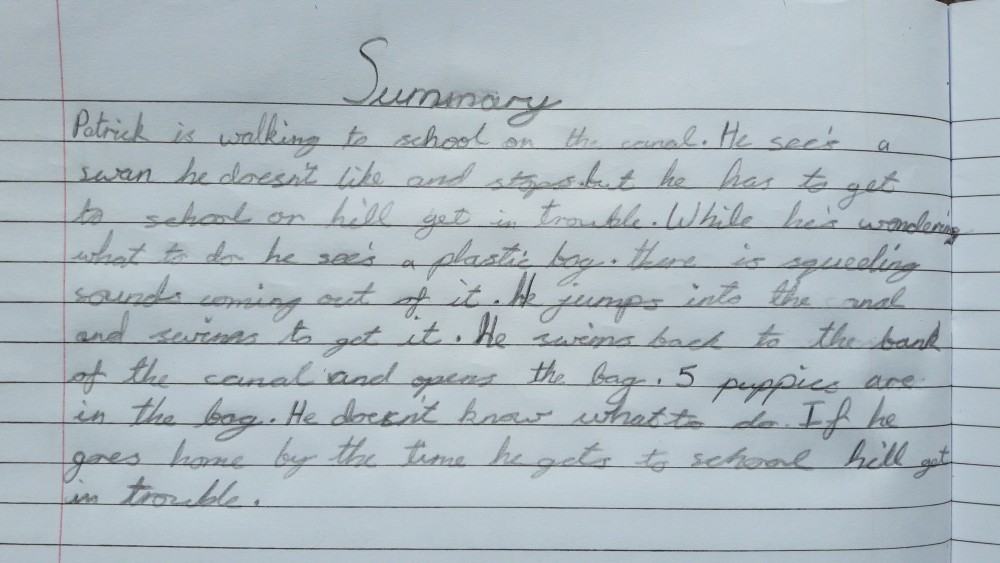 Summary
Patrick is walking to school on the canal. He see's a
swan he doesn't like and stops but he has to get
to school or hi'll get in trouble. While he's wondering
what to do he see's a plastic bag. there is squeeling
sounds coming out of it. He jumps into the anal
and swims to get it. He swims back to the bank
of the canal and opens the bag. 5 puppies are
in the bag. He doesn't know what to do. If he
goes home by the time he gets to school hi'll get
in trouble.